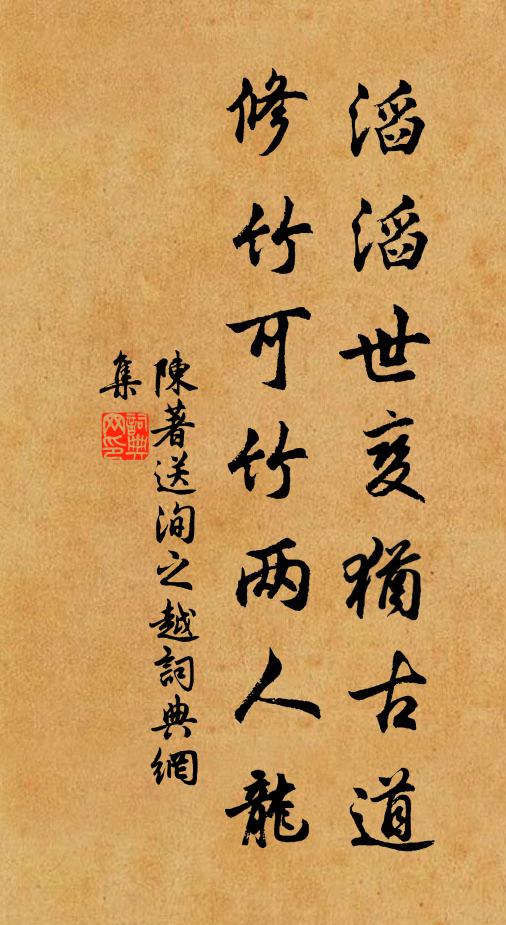 滔滔世变猶古道
修竹可竹两人龍
陳著送洵之越詞典網
集
詞典
网印